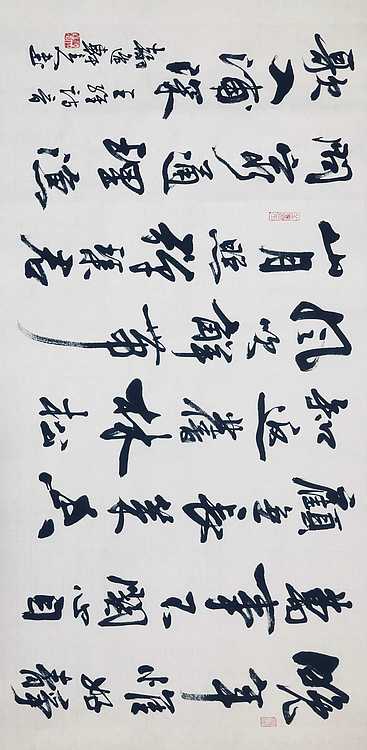 晚年惟好靜
萬事不關心自
顧無長策空
知返舊林松
風吹解帶
山月照彈琴君
問窮通理漁
歌入浦深
王維詩